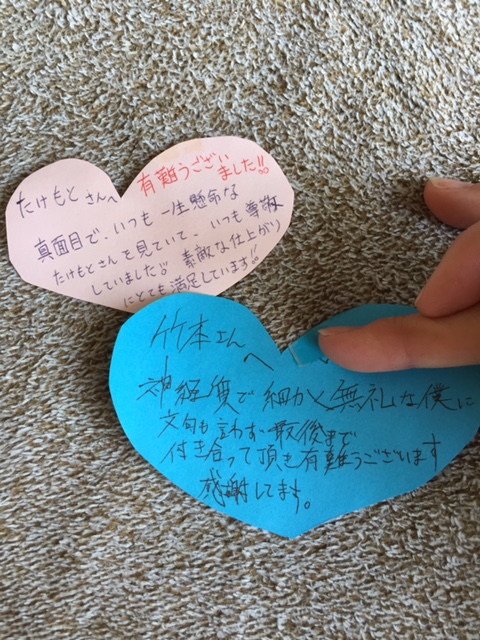 たけもとさんへ
有難うござい
ました!!
真面目で、いつも一生懸命な
たけもとさんを見ていて、いつも尊敬
していました!! 素敵な仕上がり
にとても満足しています!!
竹本さん
へ
神経質で細かく無礼な僕に
文句も言わず最後まで
付き合って頂き有難うございます
感謝してます。